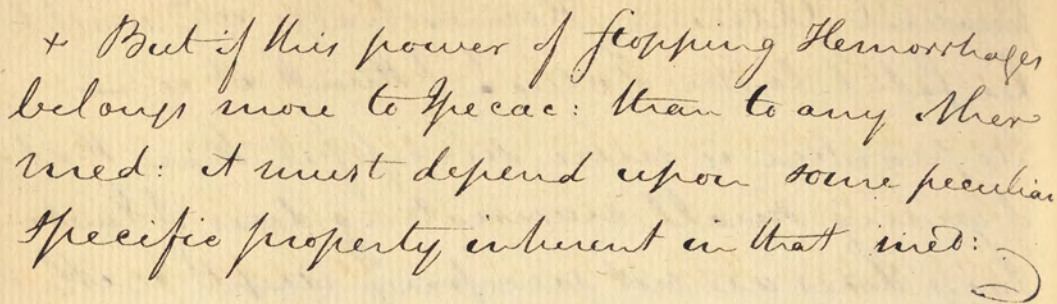 + But if this power of stopping Hemorrhages
belongs more to Ipecac: than to any other
med: it must depend upon some peculiar
specific property inherent in that med: